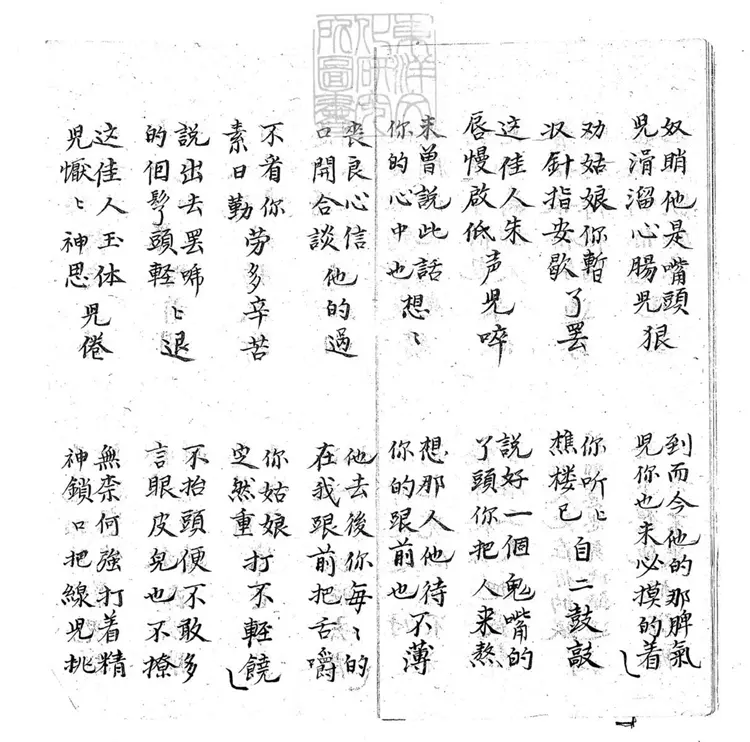 東洋文
化研究
所圖書
奴睄他是嘴頭
兒涓溜心腸兒狠
到而今他的那脾氣
兒你也未必摸的着
劝姑娘你暫
収針指安歇了罷
你听〻
樵楼已自二鼓敲
这佳人朱
唇慢啟低声兒啐
說好一個鬼嘴的
丫頭你把人来熬
未曾說此話
你的心中也想〻
想那人他待
你的跟前也不薄
丧良心信
口開合談他的過
他去後你每〻的
在我跟前把舌嚼
不省你
素日勤劳多辛苦
你姑娘
定然重打不輕饒
說出去罢唏
的佪髩頭輕〻退
不抬頭便不敢多
言眼皮兒也不撩
这佳人玉体
兒懨〻神思兒倦
無柰何強打着精
神鎖口把線兒挑